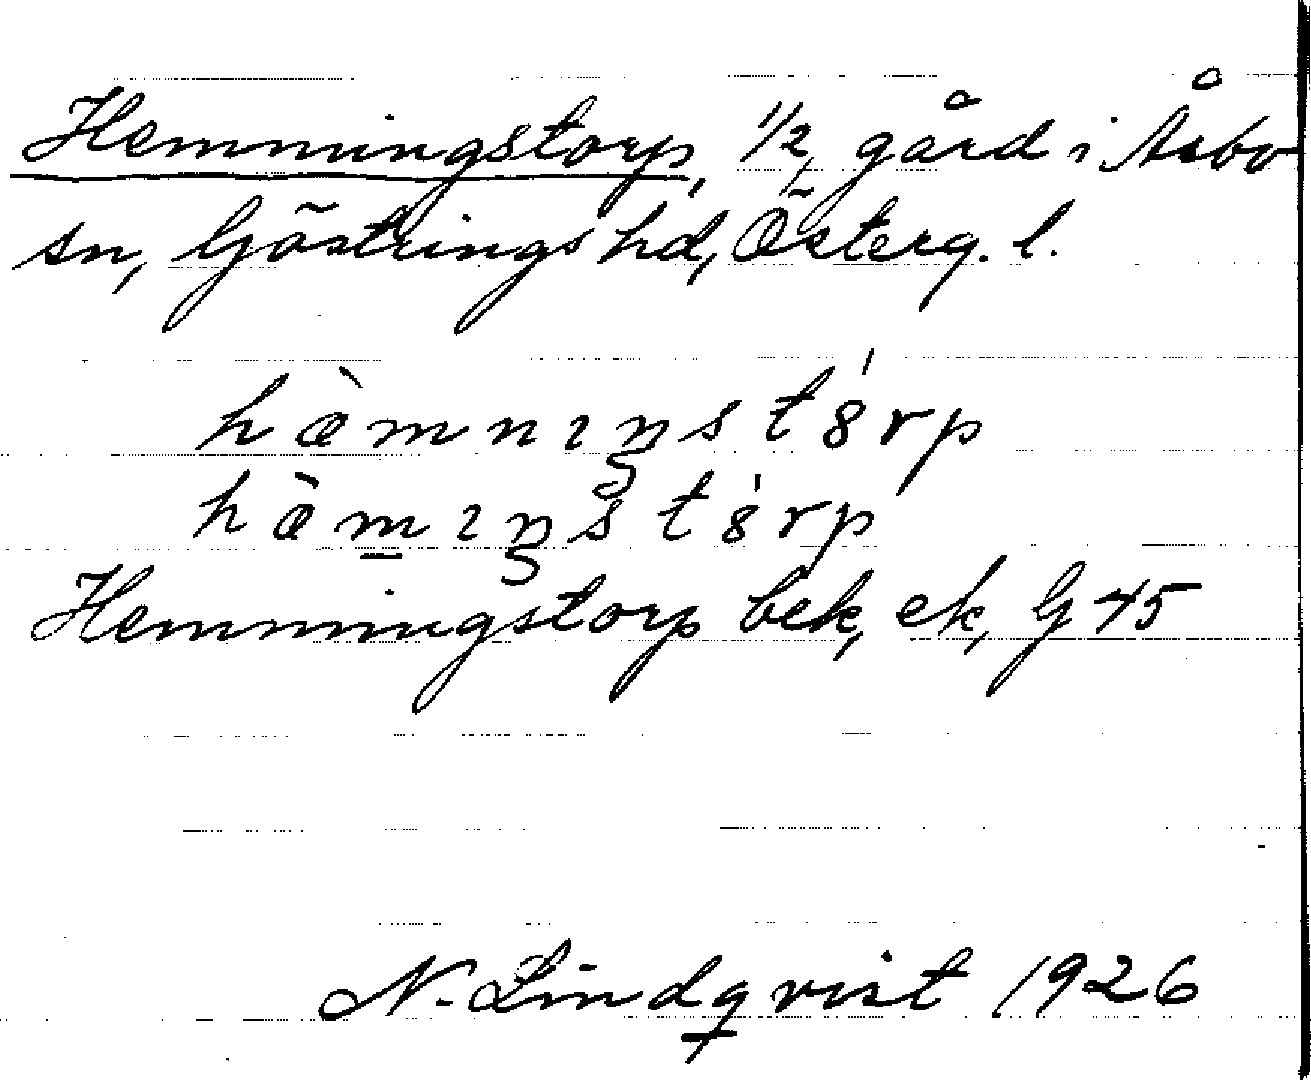 Hemmingstorp, 1/2 gård i Åsbo
sn, Göstrings hd, Österg. l.
hæ̀mnıŋstȣ́rp
hæ̀m̲ıŋstȣ́rp
Hemmingstorp bek, ek, G 45
N. Lindqvist 1926